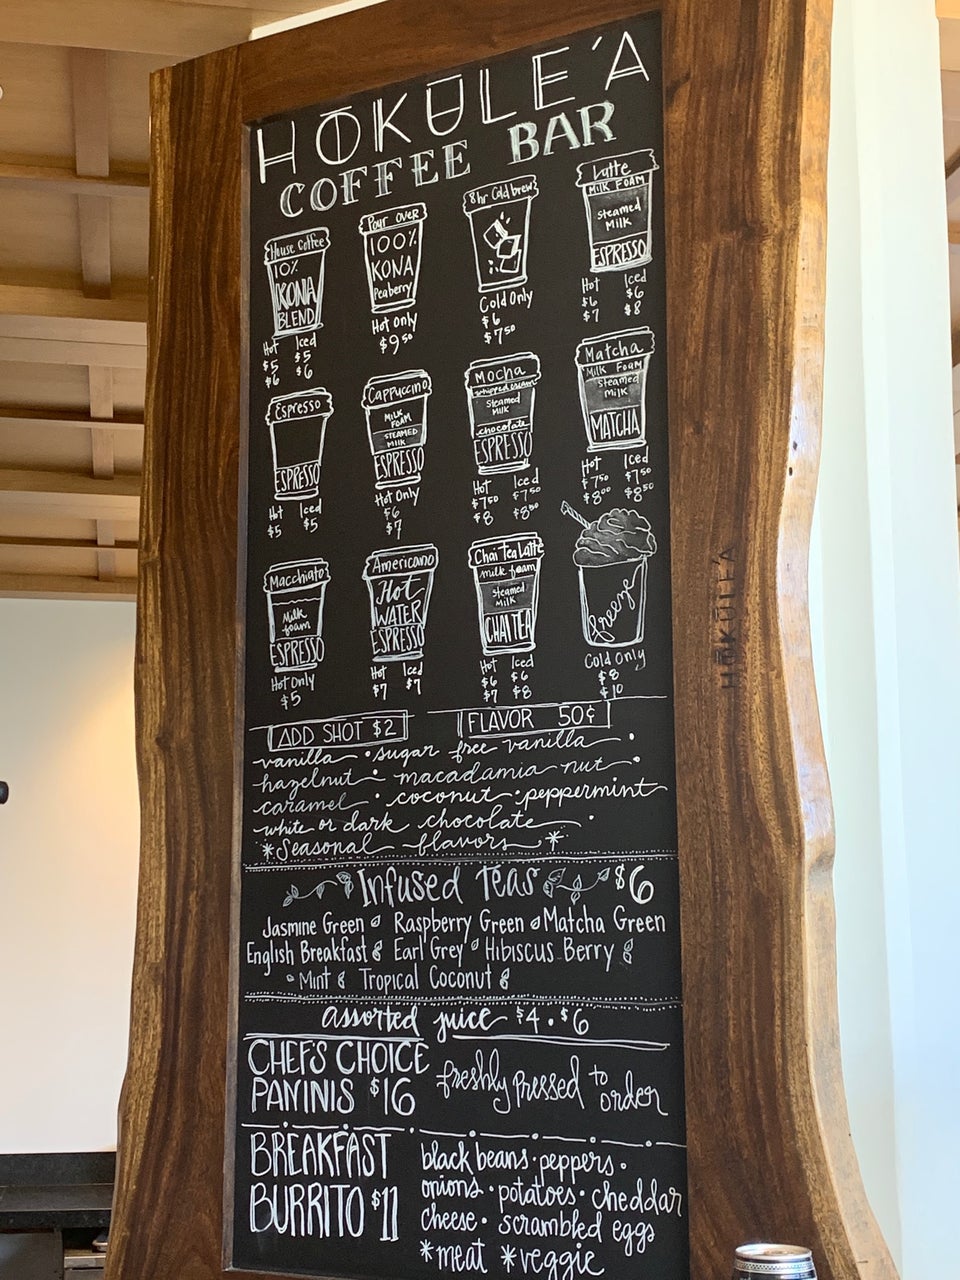 HŌKŪLE'A
COFFEE BAR
House Coffee
10%
KONA
BLEND
Hot Iced
$5 $5
$6 $6
Pour over
100%
KONA
Peaberry
Hot Only
$9.50
8hr Cold brew
Cold Only
$6
$7.50
Latte
MILK FOAM
Steamed
MILK
ESPRESSO
Hot Iced
$6 $6
$7 $8
Espresso
ESPRESSO
Hot Iced
$5 $5
Cappuccino
MILK
FOAM
STEAMED
MILK
ESPRESSO
Hot Only
$6
$7
Mocha
whipped cream
STEAMED
MILK
chocolate
ESPRESSO
Hot Iced
$7.50 $7.50
$8 $8.50
Matcha
MILK FOAM
Steamed
MILK
MATCHA
Hot Iced
$7.50 $7.50
$8.00 $8.50
Macchiato
Milk
foam
ESPRESSO
Hot Only
$5
Americano
Hot
WATER
ESPRESSO
Hot Iced
$7 $7
Chai Tea Latte
milk foam
Steamed
MILK
CHAI TEA
Hot Iced
$6 $6
$7 $8
freeze
Cold Only
$8
$10
ADD SHOT $2 FLAVOR 50¢
vanilla • sugar free vanilla •
hazelnut • macadamia nut •
caramel • coconut • peppermint
white or dark chocolate •
*Seasonal flavors*
Infused Teas $6
Jasmine Green Raspberry Green Matcha Green
English Breakfast Earl Grey Hibiscus Berry
Mint Tropical Coconut
assorted juice $4 • $6
CHEF'S CHOICE
PANINIS $16
freshly pressed to
order
BREAKFAST
BURRITO $11
black beans • peppers •
onions • potatoes • cheddar
cheese • scrambled eggs
*meat *veggie
HŌKŪLE'A